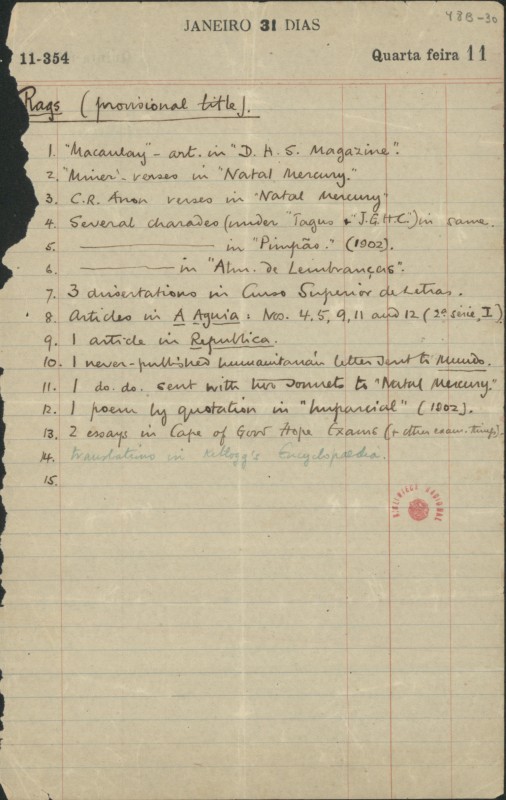 48B-30
JANEIRO 31 DIAS
11-354 Quarta feira 11
Rags (provisional title).
1. "Macaulay" - art. in "D. H. S. Magazine".
2. "Miner" - verses in "Natal Mercury."
3. C.R. Anon verses in "Natal Mercury"
4. Several charades (under "Tagus & "J.G.H.C.") in same.
5. ———— in "Pimpão." (1902).
6. ———— in "Alm. de Lembranças".
7. 3 dissertations in Curso Superior de Letras.
8. Articles in A Aguia: Nos. 4, 5, 9, 11 and 12 (2ª série, I)
9. 1 article in Republica.
10. 1 never-published humanitarian letter sent to Mundo.
11. 1 do. do. sent with two sonnets to "Natal Mercury."
12. 1 poem by quotation in "Imparcial" (1902).
13. 2 essays in Cape of Good Hope Exams (+ other exam.
14. translations in Kellogg's Encyclopædia.
15.
BIBLIOTECA NACIONAL